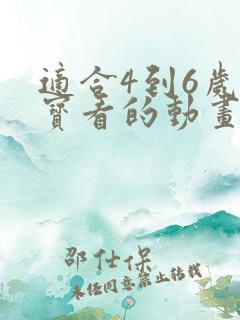 適合4到6歲
寶看的動畫
邵仕保
未經同意禁止轉載